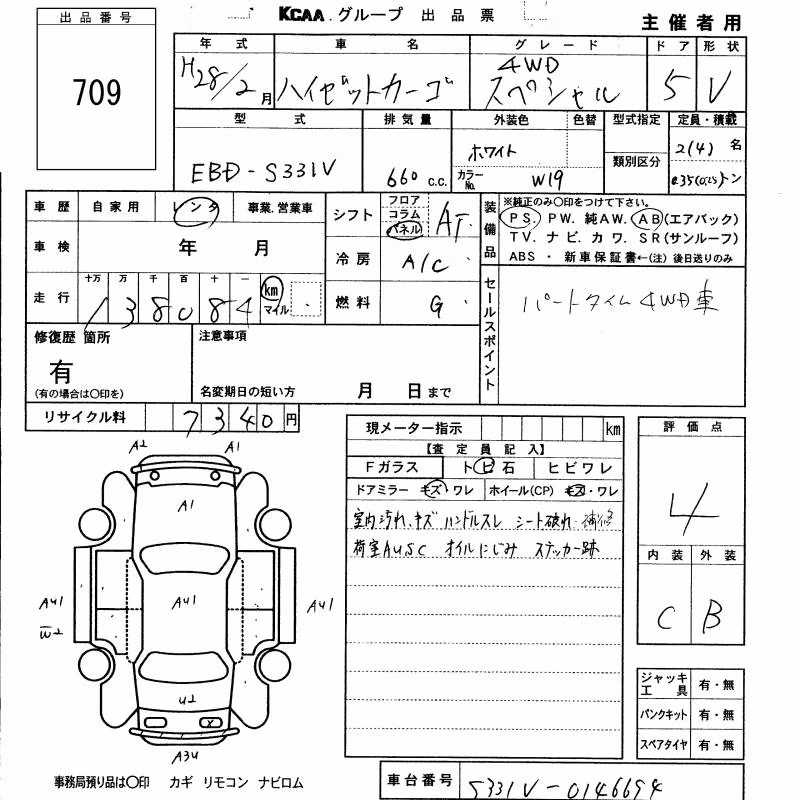 出品番号
709
KCAA. グループ 出品票
主催者用
年式 車名 グレード ドア 形状
H28/2月 ハイゼットカーゴ 4WD スペシャル 5 V
型式 排気量 外装色 色替 型式指定 定員・積載
EBD-S331V 660 c.c. ホワイト 類別区分 2(4) 名
カラーNo. W19 0.35(0.25)トン
車歴 自家用 レンタ 事業.営業車
車検 年 月
走行 十万 万 千 百 十 一
138084 km マイル
シフト フロア コラム パネル AT
冷房 A/C
燃料 G
装備品
※純正のみ○印をつけて下さい。
PS PW. 純AW. AB(エアバック)
TV. ナビ. カワ. SR(サンルーフ)
ABS ・ 新車保証書←(注) 後日送りのみ
セールスポイント
パートタイム4WD車
修復歴 箇所
有
(有の場合は○印を)
注意事項
名変期日の短い方 月 日まで
リサイクル料 7340円
現メーター指示 km
【査定員記入】
Fガラス トビ石 ヒビワレ
ドアミラー キズ・ワレ ホイール(CP) キズ・ワレ
室内汚れ、キズ ハンドルスレ シート破れ 補修
荷室AUSC オイルにじみ ステッカー跡
評価点
4
内装 外装
C B
A2 A1
A1
AU1 AU1 AU1
W2
U2
A3U
ジャッキ工具 有・無
パンクキット 有・無
スペアタイヤ 有・無
事務局預り品は○印 カギ リモコン ナビロム
車台番号 S331V-0146694